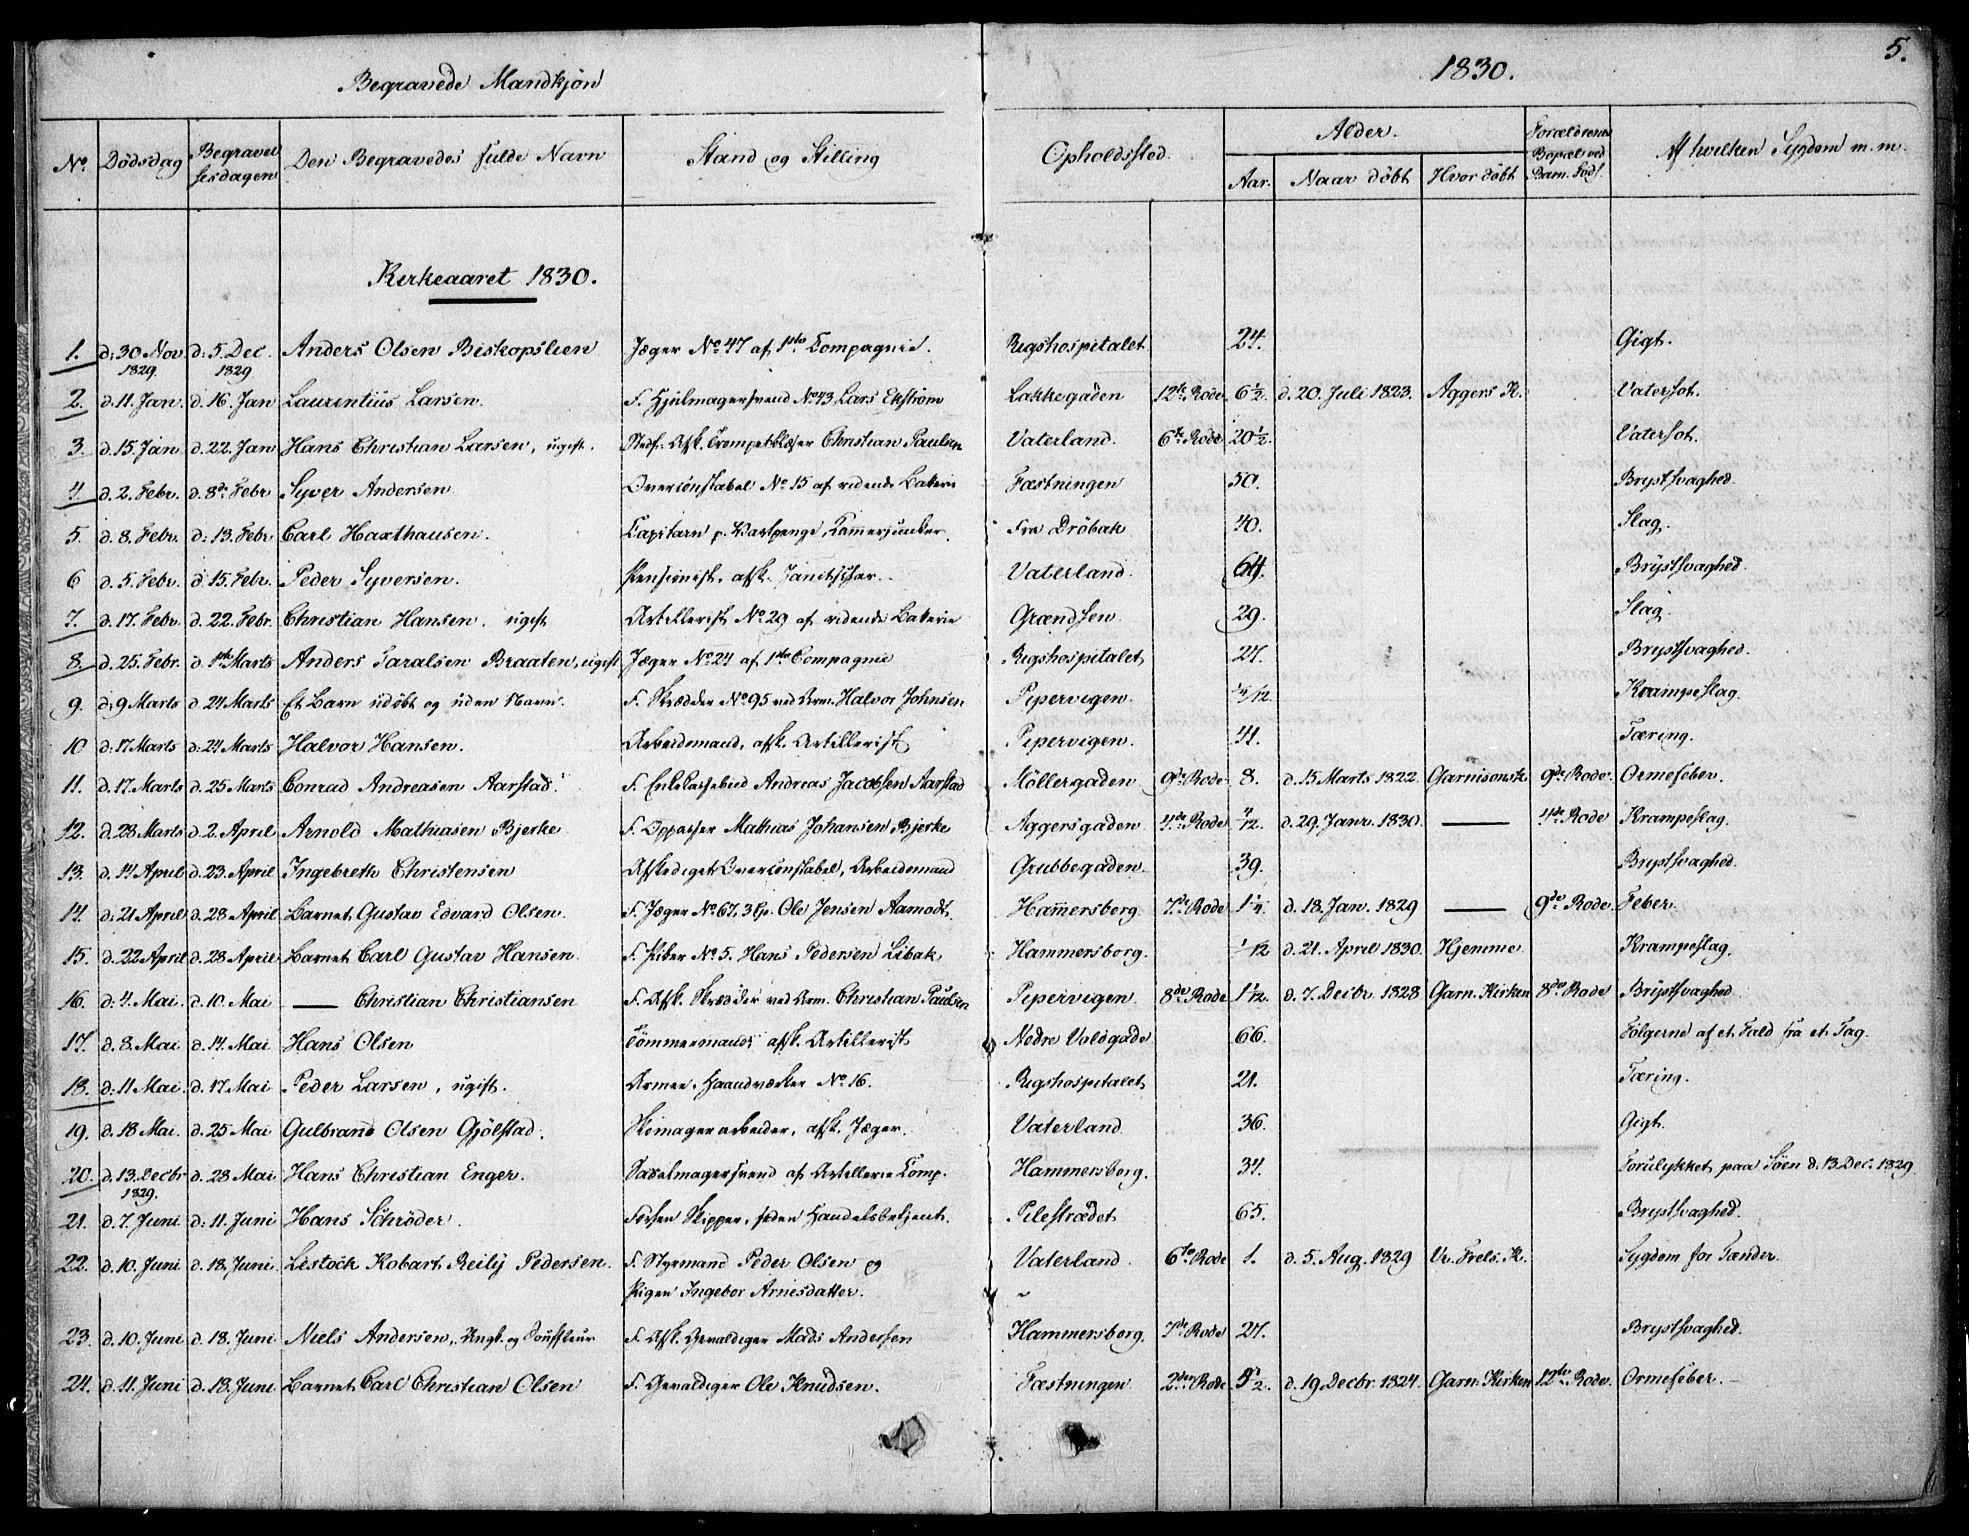 5.
Begravede Mandkjøn 1830.
No. Dödsdag Begravelsesdagen Den Begravedes fulde Navn Stand og Stilling Opholdssted. Alder. Aar. Naar döbt Hvor döbt Forældrenes Bopæl ved Barn. Föds. Af hvilken Sygdom m. m.
Kirkeaaret 1830.
1. d. 30 Nov. 1829. d. 5. Dec. 1829 Anders Olsen Biskopslien Jæger No. 47 af 1ste Compagnie. Rigshospitalet 24. Gigt.
2. d. 11. Jan. d. 16. Jan Laurentius Larsen. F. Hjulmagersvend No. 43 Lars Ekström Lakkegaden 12te Rode 6 1/2. d. 20. Juli 1823. Aggers K. Vatersot.
3. d. 15. Jan d. 22. Jan Hans Christian Larsen, ugift. Stedf. Afsk. Trompetblæser Christian Paulsen Vaterland. 6te Rode 20 1/2. Vatersot.
4. d. 2. Febr. d. 8de Febr Syver Andersen Overconstabel No. 15 af ridende Batteri Fæstningen 50. Brystsvaghed
5. d. 8. Febr. d. 13. Febr Carl Haxthausen. Capitain p. Vartpenge, Kammerjunker. Fra Dröbak 40. Slag.
6 d. 5. Febr. d. 15. Febr. Peder Syversen. Pensionist, afsk. Janitschar. Vaterland. 64. Brystsvaghed.
7. d. 17. Febr. d. 22. Febr. Christian Hansen. ugift Artillerist No. 29 af ridende Batterie Grændsen 29. Slag
8. d. 25. Febr. d. 1ste Marts Anders Taralsen Braaten, ugift Jæger No. 24 af 1ste Compagnie Rigshospitalet 27. Brystsvaghed.
9. d. 9 Marts d. 24 Marts Et Barn udöbt og uden Navn. F. Skrædder No. 95 ved Arm. Halvor Johnsen Pipervigen. /12 Krampeslag.
10 d. 17 Marts d. 24 Marts Halvor Hansen. Arbeidsmand, afsk. Artillerist Pipervigen. 41. Tæring.
11. d. 17. Marts d. 25 Marts Conrad Andreasen Aarstad. F. Andreas Jacobsen Aarstad Möllergaden 9de Rode 8. d. 15 Marts 1822. Garnisonsk 9de Rode. Ormefeber.
12. d. 28 Marts d. 2. April Arnold Mathiasen Bjerke F. Oppasser Mathias Johansen Bjerke Aggersgaden 4de Rode 2/12. d. 29. Janr. 1830. — 4de Rode Krampeslag.
13. d. 14 April d. 23. April Ingebreth Christensen Afskediget Overconstabel, Arbeidsmand Grubbegaden 39. Brystsvaghed.
14. d. 21 April d. 28 April Barnet Gustav Edvard Olsen. F. Jæger No. 67. 3 Cp. Ole Jensen Aamodt. Hammersborg 7de Rode 1 1/4. d. 18. Jan. 1829 — 9de Rode. Feber
15. d. 22 April d. 28 April Barnet Carl Gustav Hansen. F. Piber No. 5. Hans Pedersen Libak Hammersborg. 1/12 d. 21. April 1830. Hjemme Krampeslag.
16. d. 4. Mai. d. 10. Mai — Christian Christiansen F. Afsk. Skrædder ved Arm. Christian Paulsen Pipervigen 8de Rode 1 1/2. d. 7. Decbr. 1828 Garn. Kirken 8de Rode Brystsvaghed
17. d. 8. Mai d. 14. Mai Hans Olsen Tömmermand, afsk. Artillerist Nedre Voldgade 66. Fölgerne af et Fald fra et Tag.
18. d. 11 Mai. d. 17 Mai Peder Larsen, ugift. Armee. Haandværker No. 16. Rigshospitalet 21. Tæring.
19. d. 18 Mai. d. 25 Mai Gulbrand Olsen Gjölstad. Skomagerarbeider, afsk. Jæger. Vaterland 36. Gigt.
20. d. 13. Decbr 1829. d. 28 Mai Hans Christian Enger. Sadelmagersvend af Artillerie Comp. Hammersborg. 34. Forulykket paa Söen d. 13 Dec. 1829.
21. d. 7. Juni d. 11. Juni Hans Schröder. Forhen Skipper, siden Handelsbetjent. Pilestrædet 65. Brystsvaghed.
22. d. 10. Juni d. 18. Juni Lestock Robart Reily Pedersen. F. Styrmand Peder Olsen og Vaterland. 6te Rode 1. d. 5. Aug. 1829 Vr. Frels. K. Sygdom for Tænder
Pigen Ingebor Arnesdatter.
23. d. 10. Juni d. 18. Juni Niels Andersen, Ungk. og Souffleur F. Afsk. Gevaldiger Mads Andersen Hammersborg. 7de Rode 27. Brystsvaghed.
24. d. 11. Juni d. 18. Juni Barnet Carl Christian Olsen F. Gevaldiger Ole Knudsen. Fæstningen 2den Rode 5 1/2. d. 19. Decbr. 1824. Garn. Kirken 12te Rode. Ormefeber.